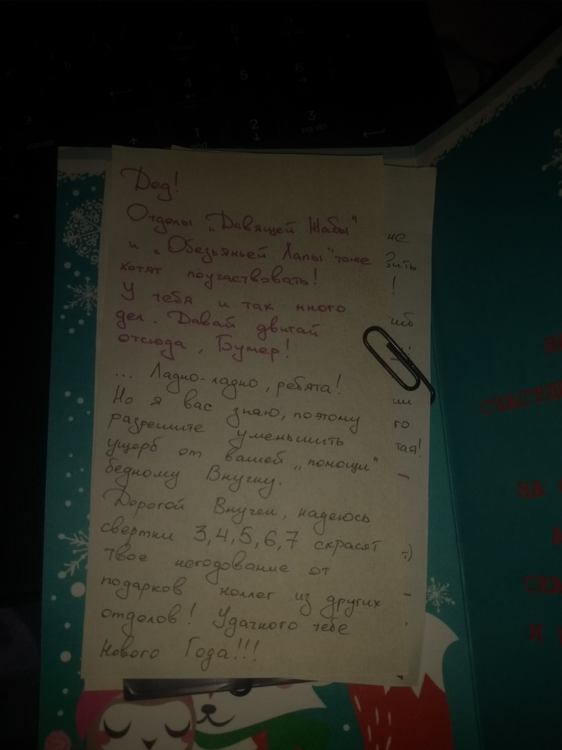 Дед!
Отделы „Давящей Жабы"
и „Обезьяньей Лапы" тоже
хотят поучаствовать!
У тебя и так много
дел. Давай двигай
отсюда, Бумер!
... Ладно-ладно, ребята!
Но я вас знаю, поэтому
разрешите уменьшить
ущерб от вашей „помощи"
бедному Внучку.
Дорогой Внучек, надеюсь
свертки 3,4,5,6,7 скрасят
твое негодование от
подарков коллег из других
отделов! Удачного тебе
Нового Года!!!
не
!
го
:)
за
и